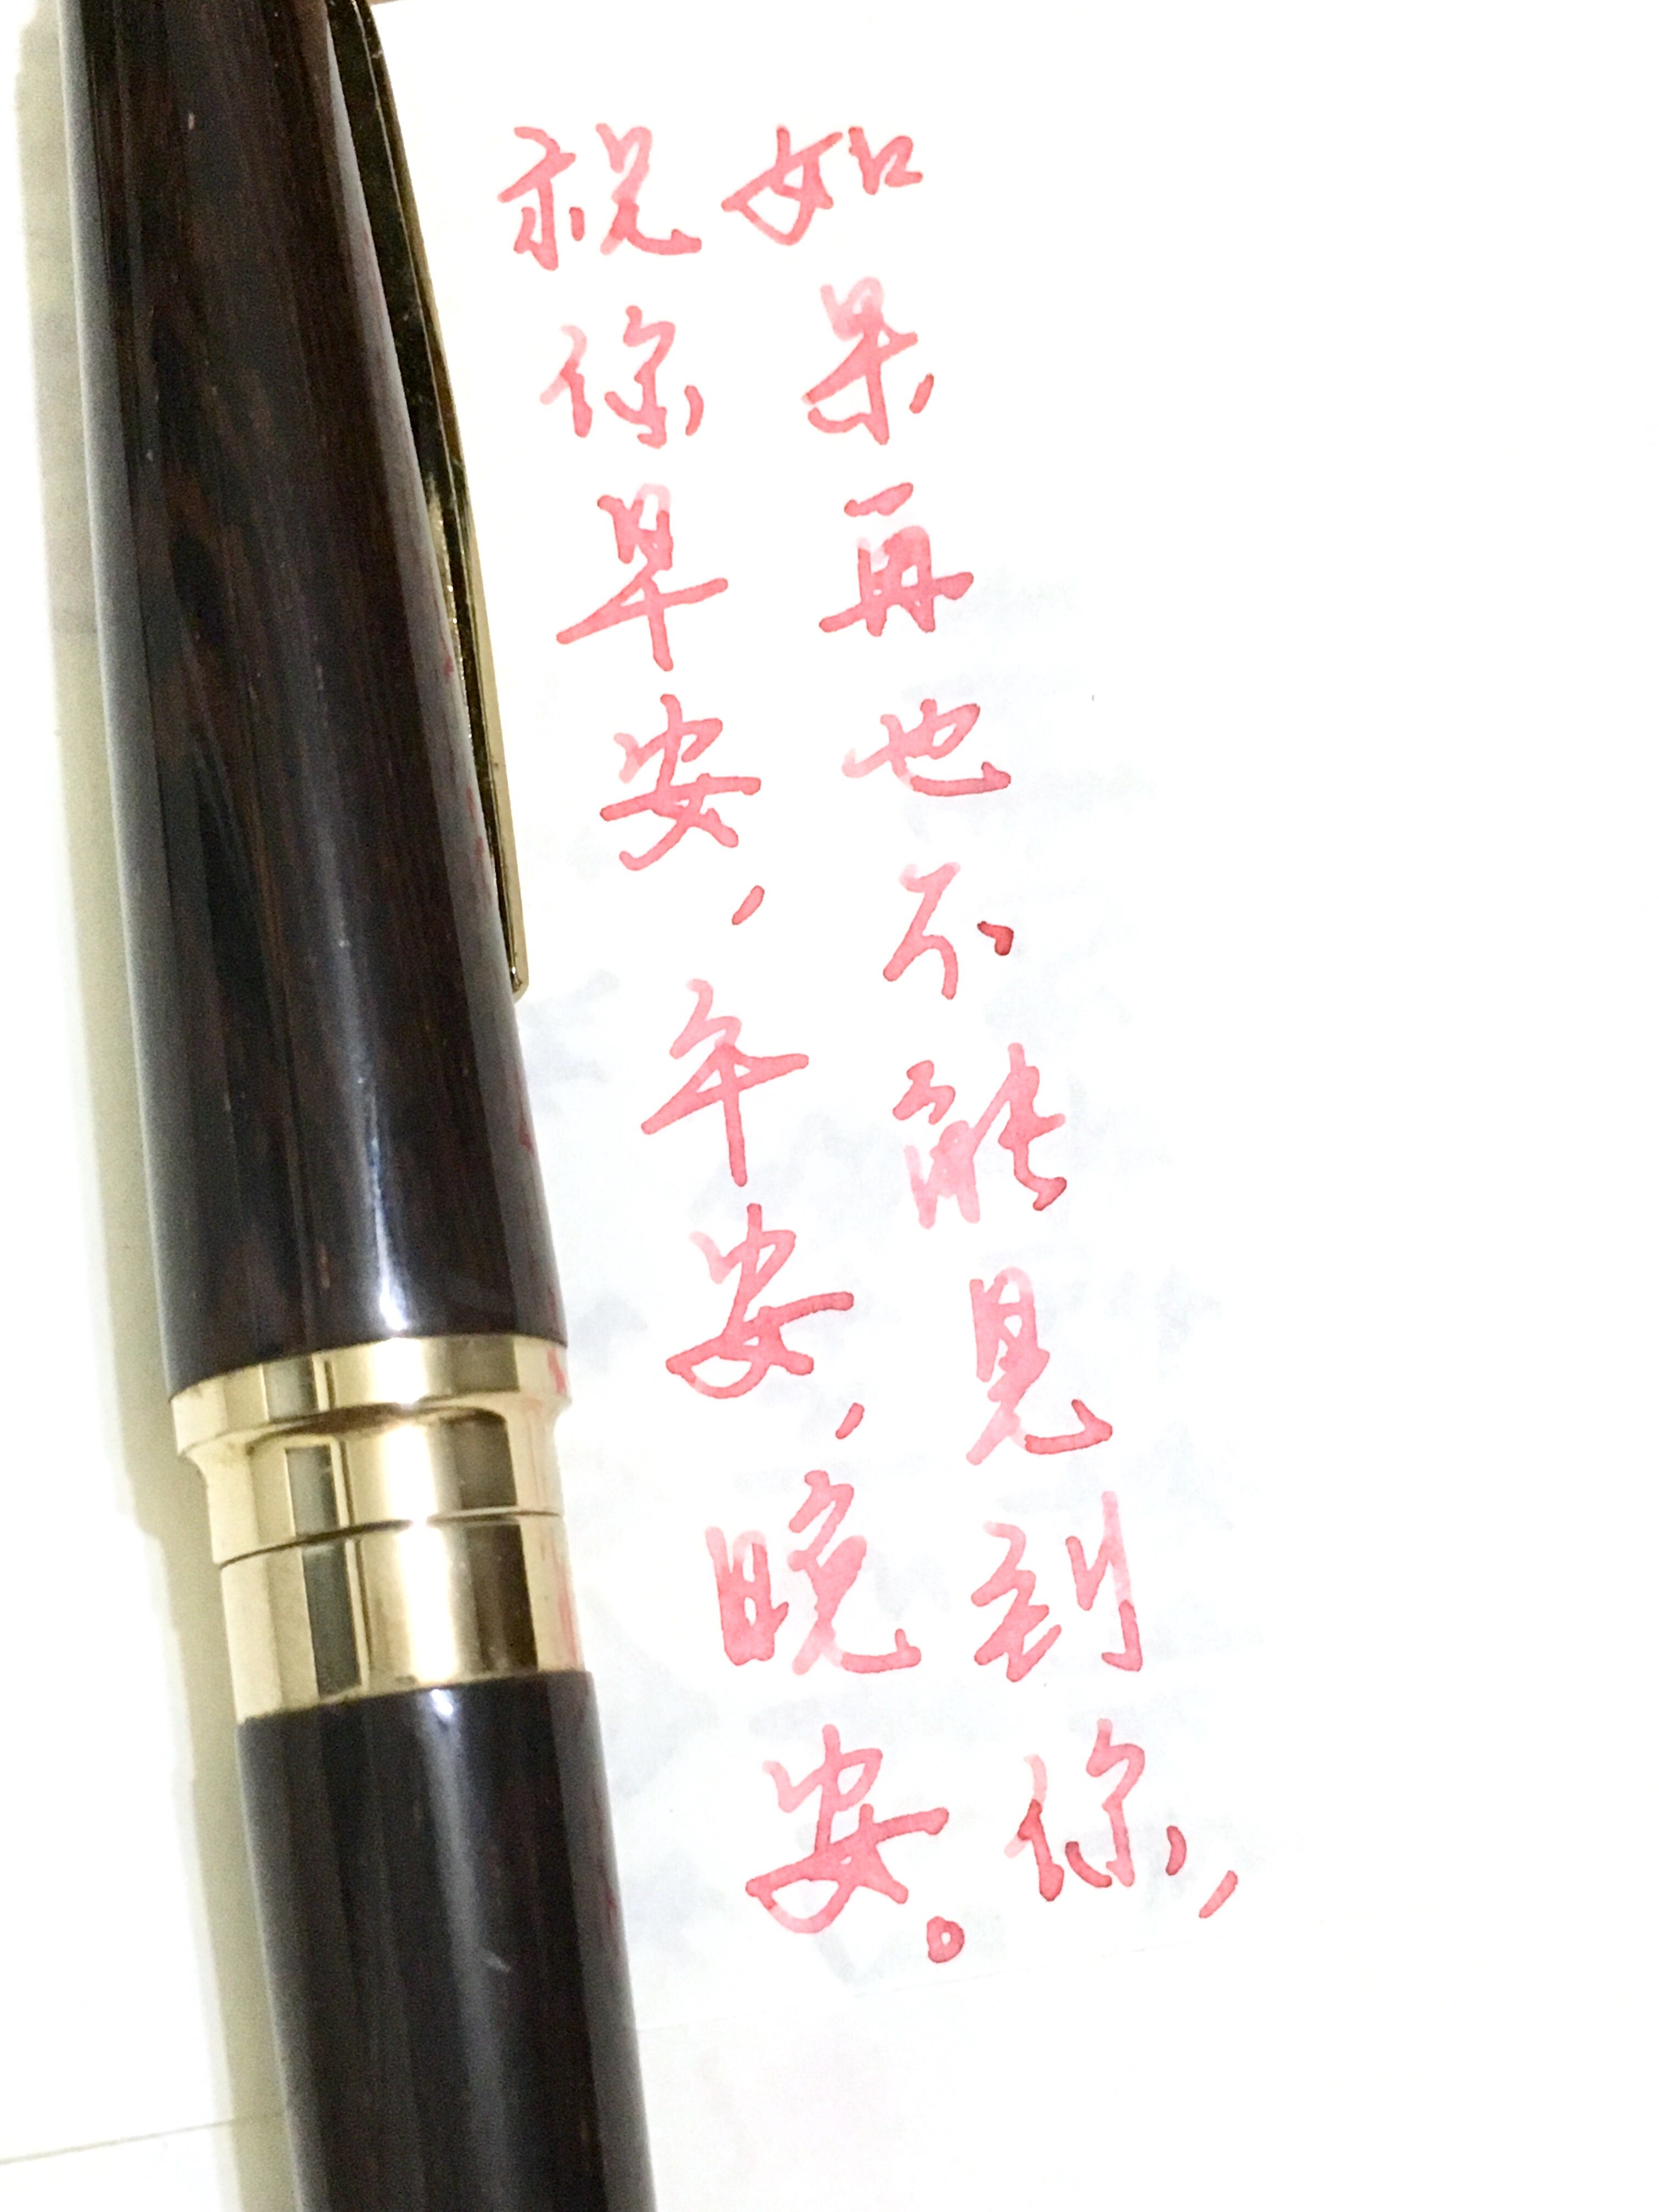 如果再也不能见到你，
祝你早安，午安，晚安。